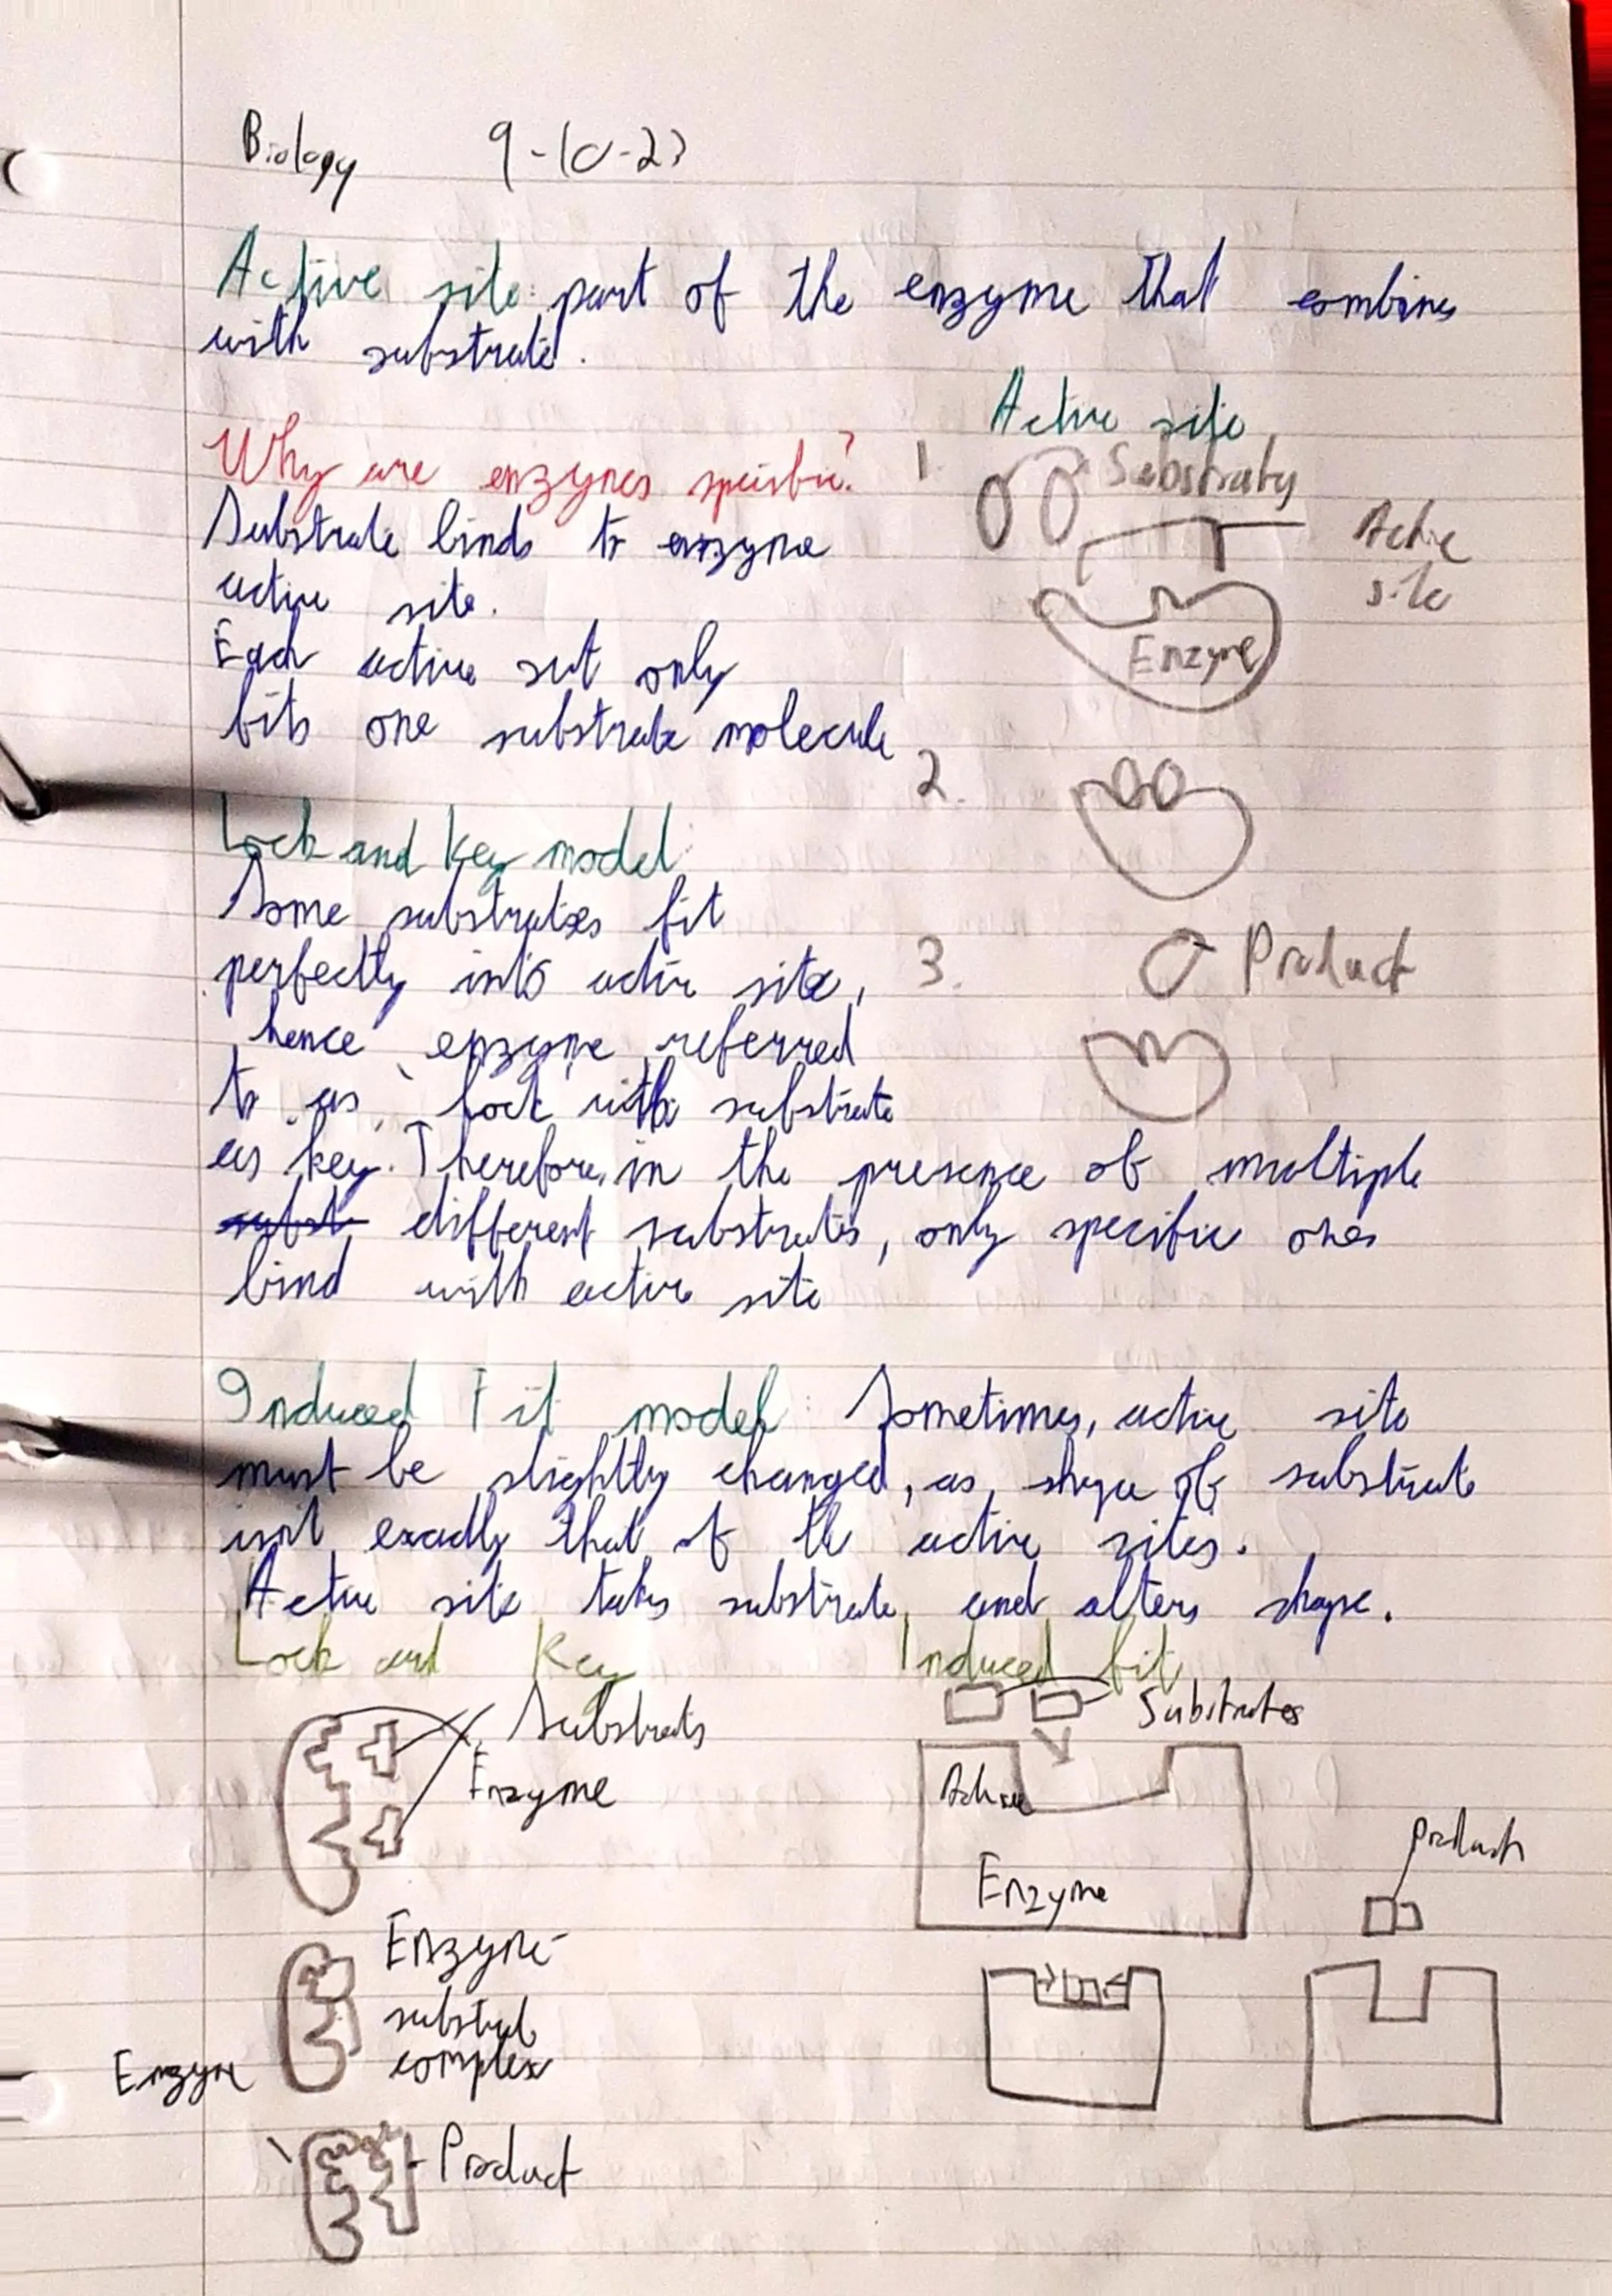 Biology 9-10-23
Active site: part of the enzyme that combines
with substrate.
Why are enzymes specific?
Substrate binds to enzyme
active site.
Each active sit only
fits one substrate molecule
Active site
1. Substrates
Active
site
Enzyme
2.
3. Product
Lock and key model:
Some substrates fit
perfectly into active site,
hence enzyme referred
to as lock with substrate
as key. Therefore, in the presence of multiple
subst different substrates, only specific ones
bind with active site
Induced Fit model: Sometimes, active site
must be slightly changed, as shape of substrate
isn't exactly that of the active sites.
Active site takes substrate, and alters shape.
Lock and Key
Substrates
Enzyme
Enzyme-
substrate
complex
Enzyme
Product
Induced fit
Substrates
Active
Enzyme
product